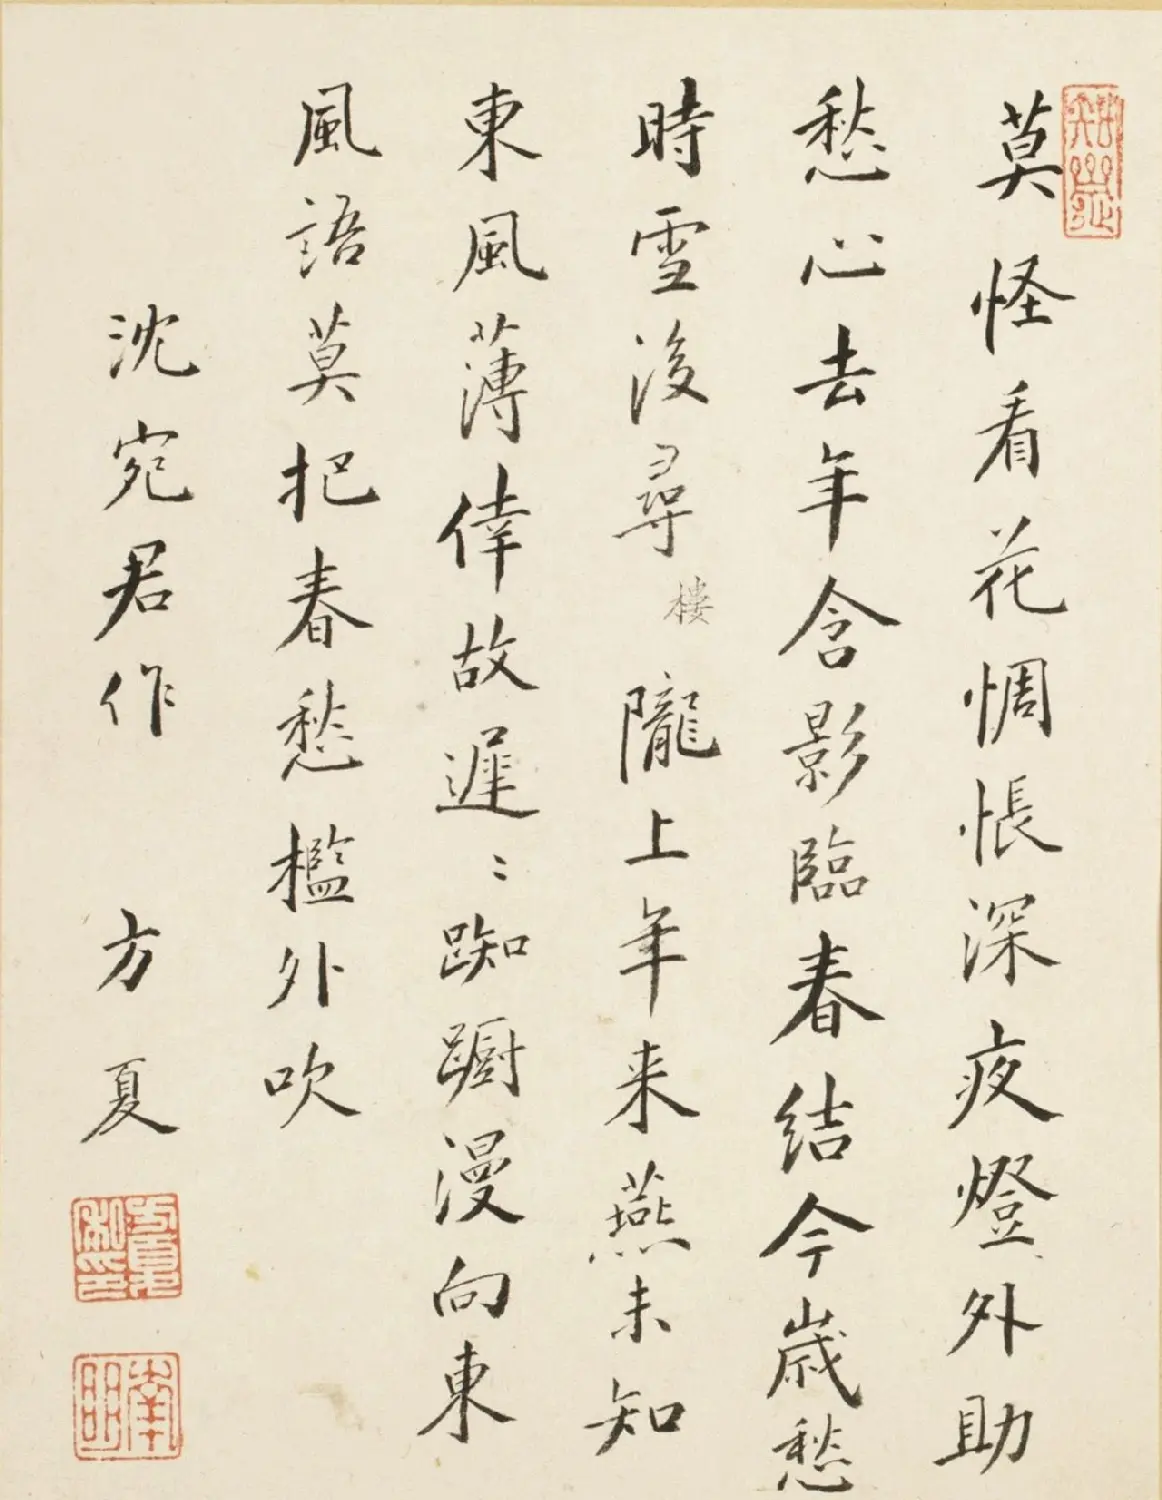 莫怪看花惆悵深夜燈外助
愁心去年含影臨春結今歲愁
時雪後尋樓隴上年来燕未知
東風薄倖故遲〻踟躕漫向東
風語莫把春愁檻外吹
沈宛君作 方夏
方夏私印
南明